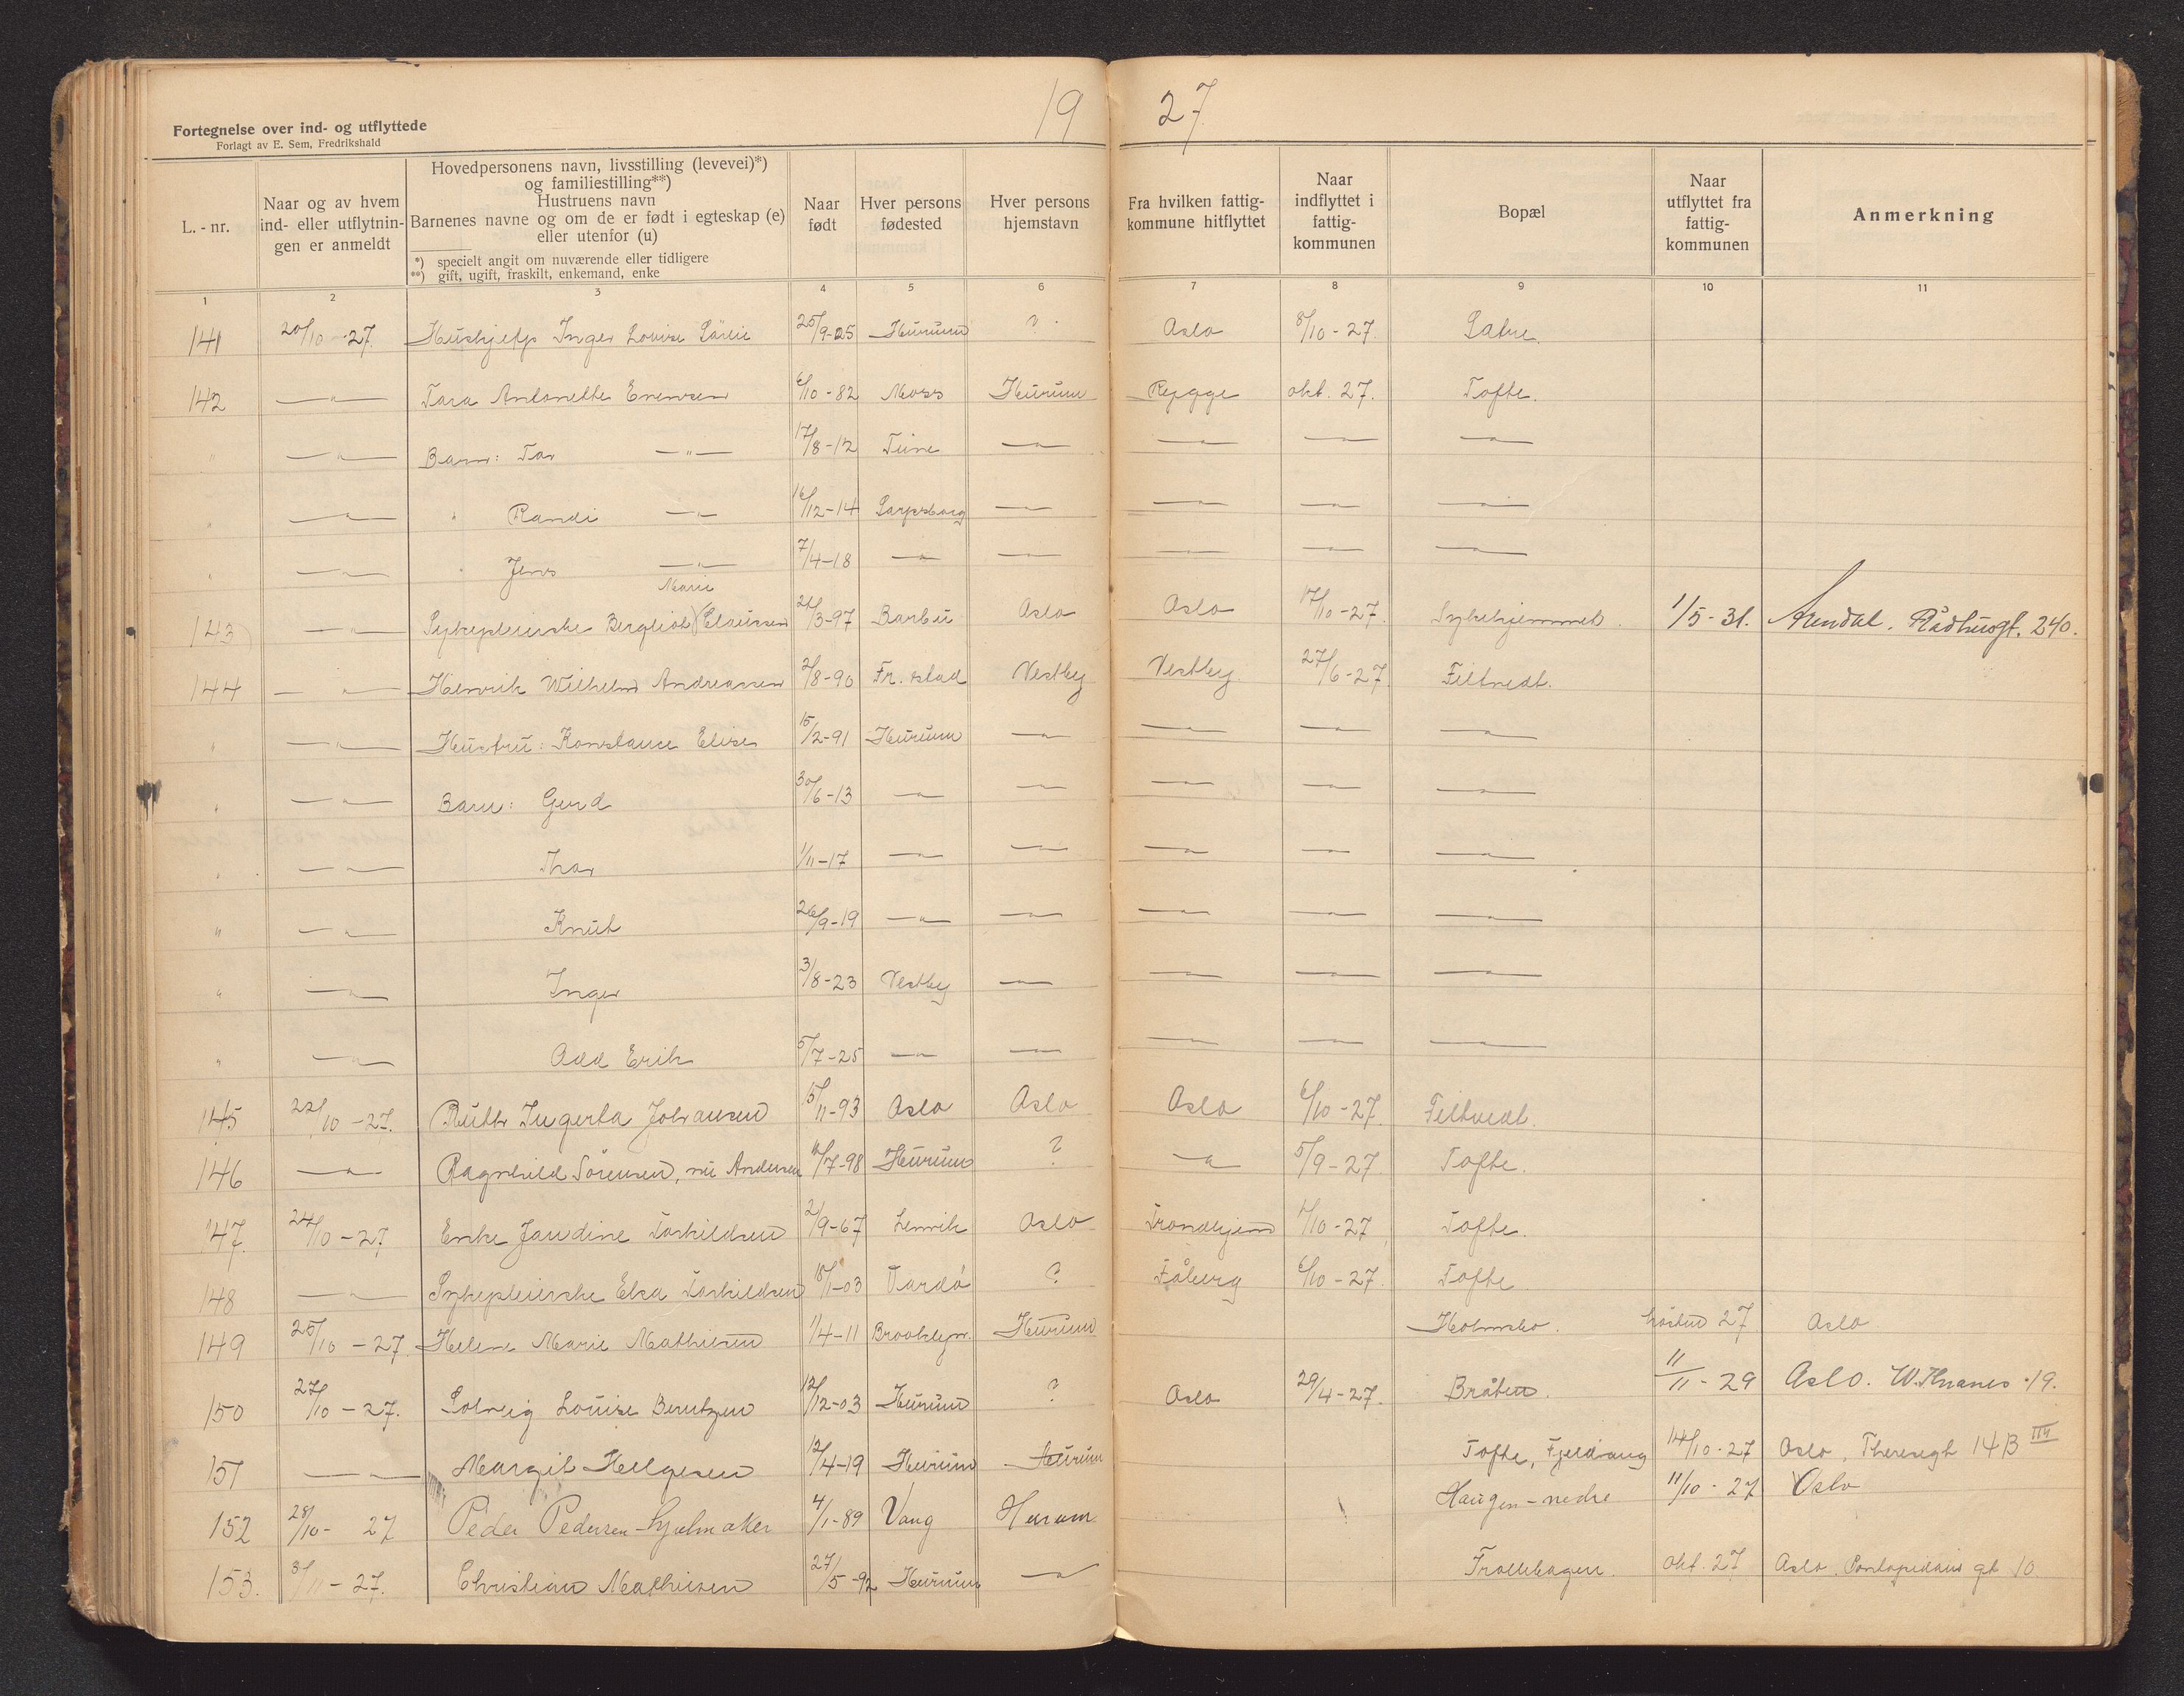 19 27
Fortegnelse over ind- og utflyttede
Forlagt av E. Sem, Fredrikshald
L. - nr.
Naar og av hvem
ind- eller utflytnin-
gen er anmeldt
Hovedpersonens navn, livsstilling (levevei)*)
og familiestilling**)
Hustruens navn
Barnenes navne og om de er født i egteskap (e)
eller utenfor (u)
*) specielt angit om nuværende eller tidligere
**) gift, ugift, fraskilt, enkemand, enke
Naar
født
Hver persons
fødested
Hver persons
hjemstavn
Fra hvilken fattig-
kommune hitflyttet
Naar
indflyttet i
fattig-
kommunen
Bopæl
Naar
utflyttet fra
fattig-
kommunen
Anmerkning
1 2 3 4 5 6 7 8 9 10 11
141 20/10-27. Inger Louise 25/9-05 Hurum ? Oslo 8/10-27. Sætre.
142 —"— Antonette Evensen 6/10-82 Moss Hurum Rygge okt. 27. Tofte.
" —"— Barn: Tor —"— 17/8-12 Tune —"— —"— —"— —"—
" —"— " Randi —"— 16/12-14 Sarpsborg —"— —"— —"— —"—
" —"— " Jens —"— 7/4-18 —"— —"— —"— —"— —"—
Marie
143 —"— Sykepleierske Bergliot Claussen 21/3-97 Barbu Oslo Oslo 17/10-27. Sykehjemmet. 1/5-31. Arendal. Rådhusgt. 240.
144 —"— Henrik Wilhelm Andreassen 2/8-90 Fr.stad Vestby Vestby. 27/6-27. Filtvedt.
" —"— Hustru: Konstance Elise 15/2-91 Hurum —"— —"— —"— —"—
" —"— Barn: Gerd 30/6-13 —"— —"— —"— —"— —"—
" —"— Thor 1/11-17 —"— —"— —"— —"— —"—
" —"— Knut 26/9-19 —"— —"— —"— —"— —"—
" —"— Inger 3/8-23 Vestby —"— —"— —"— —"—
" —"— Odd Erik 5/7-25 —"— —"— —"— —"— —"—
145 22/10-27. Ruth Ingerta Johansen 15/11-93 Oslo Oslo Oslo 6/10-27. Filtvedt.
146 —"— Ragnhild Sörensen, nu Andersen /7-98 Hurum ? —"— 5/9-27 Tofte.
147. 24/10-27 Enke Jandine Torkildsen 2/9-67 Lenvik Oslo Trondhjem /10-27 Tofte.
148 —"— Sykepleierske Elsa Torkildsen 18/1-03 Vardö ? Fåberg 6/10-27. Tofte
149 25/10-27. Helene Marie Mathisen 1/4-11 Brooklyn. Hurum Holmsbo. høsten 27 Oslo
150 27/10-27. Solveig Louise Berntzen 12/12-03 Hurum ? Oslo 29/4-27. Bråten. 11/11-29 Oslo. W. Thranes 19.
151 —"— Margit Helgesen 12/4-19 Hurum Hurum Tofte, Fjeldvang 14/10-27 Oslo, Theresegt 14B III
152 28/10-27 Peder Pedersen-Hjulmaker 4/1-89 Vang Hurum Haugen-nedre 11/10-27 Oslo
153. 3/11-27. Christian Mathisen 27/5-92 Hurum —"— Trollhagen. okt. 27 Oslo, Pontopidans gt 10.